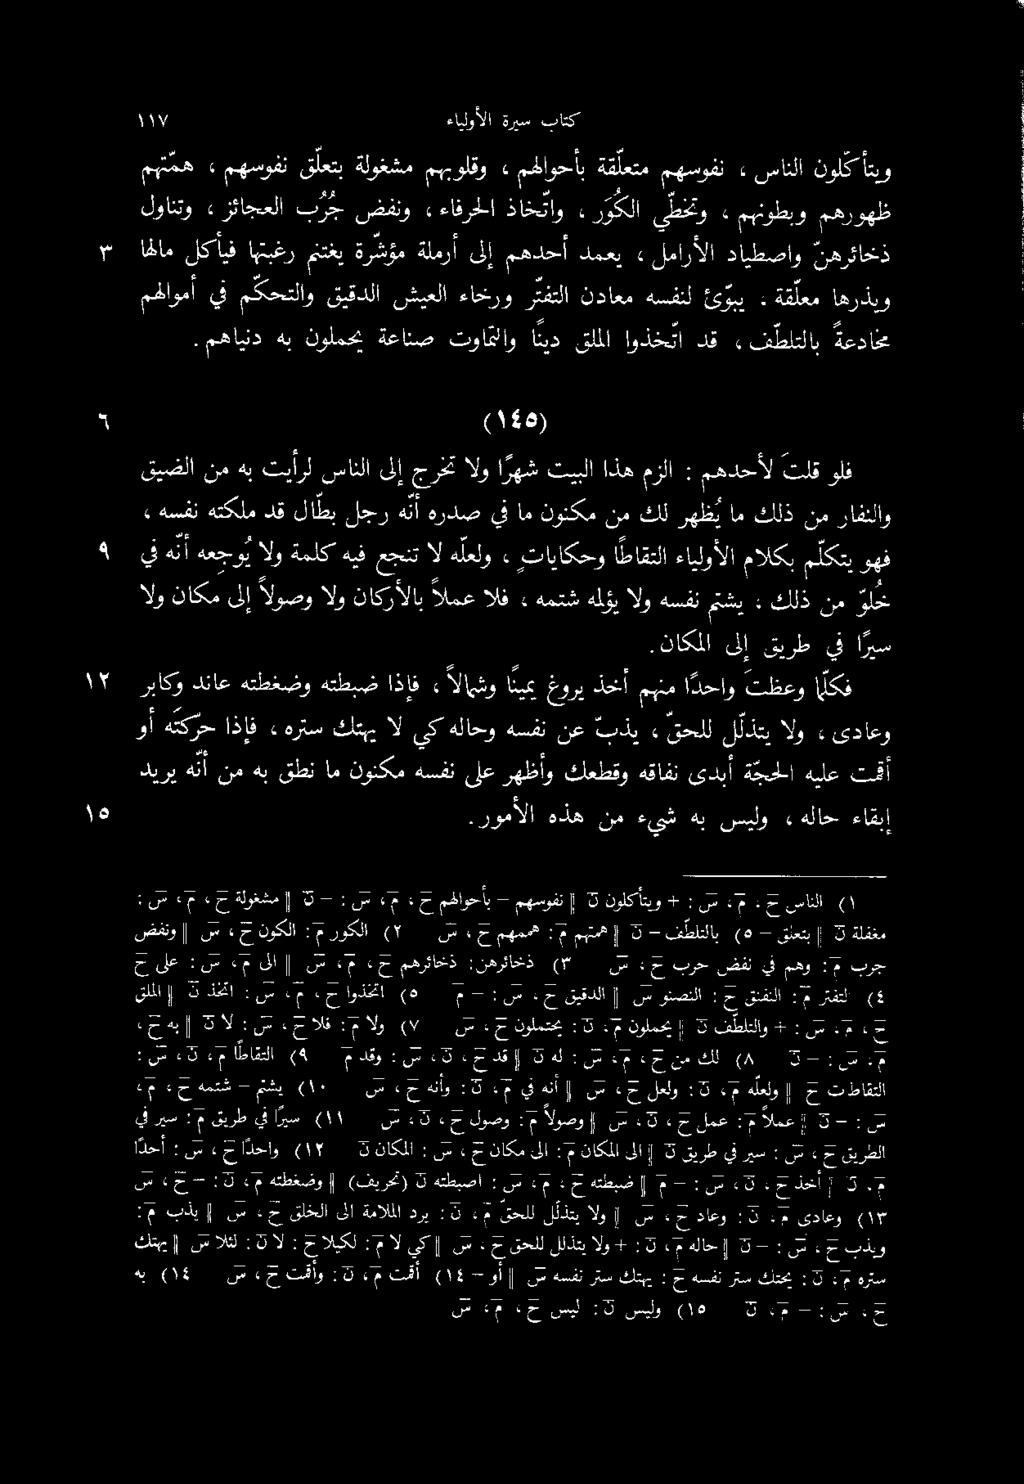 كتاب سيرة الأولياء ١١٧
ويتأكّلون الناس ، نفوسهم متعلّقة بأحوالهم ، وقلوبهم مشغولة بتعلّق نفوسهم ، همّتهم
ظهورهم وبطونهم ، وتخطّي الكُوَر ، واتّخاذ الحرفاء ، ونفض جُرُب العجائز ، وتناول
ذخائرهنّ واصطياد الأرامل ، يعمد أحدهم إلى أرملة مؤشّرة يغتنم رغبتها فيأكل مالها ٣
ويذرها معلّقة ، يبوّئ لنفسه معادن التفتّر ورخاء العيش الدقيق والتحكّم في أموالهم
مخادعةً بالتلطّف ، قد اتّخذوا الملق دينًا والتماوت صناعة يحملون به دنياهم .
(١٤٥) ٦
فلو قلتَ لأحدهم : الزم هذا البيت شهرًا ولا تخرج إلى الناس لرأيت به من الضيق
والنفار من ذلك ما يُظهر لك من مكنون ما في صدره أنّه رجل بطّال قد ملكته نفسه ،
فهو يتكلّم بكلام الأولياء التقاطًا وحكايات ، ولعلّه لا تنجع فيه كلمة ولا يُوجِعه أنّه في ٩
خُلُوّ من ذلك ، يشتم نفسه ولا يؤلمه شتمه ، فلا عملاً بالأركان ولا وصولاً إلى مكان ولا
سيرًا في طريق إلى المكان .
فكلّما وعظتَ واحدًا منهم أخذ يروغ يمينًا وشمالاً ، فإذا ضبطته وضغطته عاند وكابر ١٢
وعادى ، ولا يتذلّل للحقّ ، يذبّ عن نفسه وحاله كي لا يهتك ستره ، فإذا حرّكتَه أو
أقمت عليه الحجّة أبدى نفاقه وقطعك وأظهر على نفسه مكنون ما نطق به من أنّه يريد
إبقاء حاله ، وليس به شيء من هذه الأمور . ١٥
١) الناس ح ، م ، س : + ويتأكلون ن || نفوسهم – بأحوالهم ح ، م ، س : – ن || مشغولة ح ، م ، س :
مغفلة ن || بتعلق – ٥) بالتلطّف – ن || همتهم م : هممهم ح ، س ٢) الكور م : الكون ح ، س || ونفض
جرب م : وهم في نفض جرب ح ، س ٣) ذخائرهن : ذخائرهم ح ، م ، س || الى م ، س : على ح
٤) لتفتر م : التفنق ح : ونصنو س || الدقيق ح ، س : – م ٥) اتخذوا ح ، م ، س : اتخذ ن || الملق
ح ، م ، س : + والتلطّف ن || يحملون م ، ن : يحتملون ح ، س ٧) ولا م : فلا ح ، س : لا ن || به ح ،
م ، س : – ن ٨) لك من ح ، م ، س : له ن || قد ح ، ن ، س : وقد م ٩) التقاطًا م ، ن ، س :
التقاطات ح || ولعلّه م ، ن : ولعل ح ، س || أنه في م ، ن : وأنه ح ، س ١٠) يشتم – شتمه ح ، م ،
س : – ن || عملاً م : عمل ح ، ن ، س || وصولاً م : وصول ح ، ن ، س ١١) سيرًا في طريق م : سير في
الطريق ح ، س : سير في طريق ن || الى المكان م : الى مكان ح ، س : المكان ن ١٢) واحدًا ح ، س : أحدًا
م ، ن || أخذ ح ، ن ، س : – م || ضبطته ح ، م ، س : اصبطته ن (تحريف) || وضغطته م ، ن : – ح ، س
١٣) وعادى م ، ن : وعاد ح ، س || ولا يتذلّل للحقّ م ، ن : يرد الملامة الى الخلق ح ، س || يذب م :
ويذب ح ، س : – ن || حاله م ، ن : + ولا يتذلل للحق ح ، س || كي لا م : لكيلا ح : لا ن : لئلا س || يهتك
ستره م ، ن : يحتك ستر نفسه ح : يهتك ستر نفسه س || أو – ١٤) أقمت م ، ن : وأقمت ح ، س ١٤) به
ح ، س : – م ، ن ١٥) وليس ن : ليس ح ، م ، س